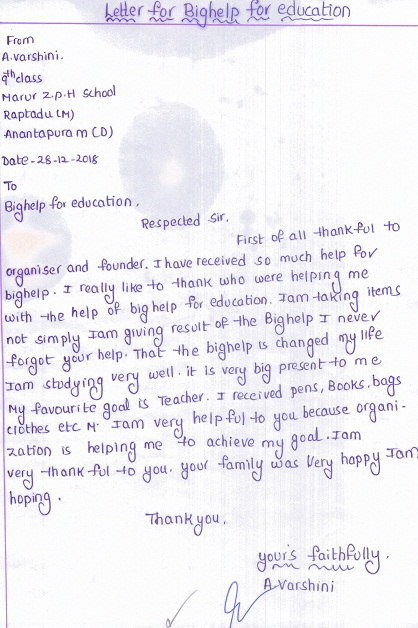 Letter for Bighelp for education
From
A.varshini.
9th class
Marur Z.P.H School
Raptadu (M)
Anantapuram (D)
Date - 28-12-2018
To
Bighelp for education.
Respected sir.
First of all thank-ful to
organiser and founder. I have received so much help for
bighelp. I really like to thank who were helping me
with the help of big help for education. Iam taking items
not simply Iam giving result of the Bighelp I never
forgot your help. That the bighelp is changed my life
Iam studying very well. it is very big present to me
My favourite goal is Teacher. I received pens, Books, bags
clothes etc Iam very help ful to you because organi-
zation is helping me to achieve my goal. Iam
very thank-ful to you. your family was very happy Iam
hoping.
Thank you.
your's faithfully.
A varshini